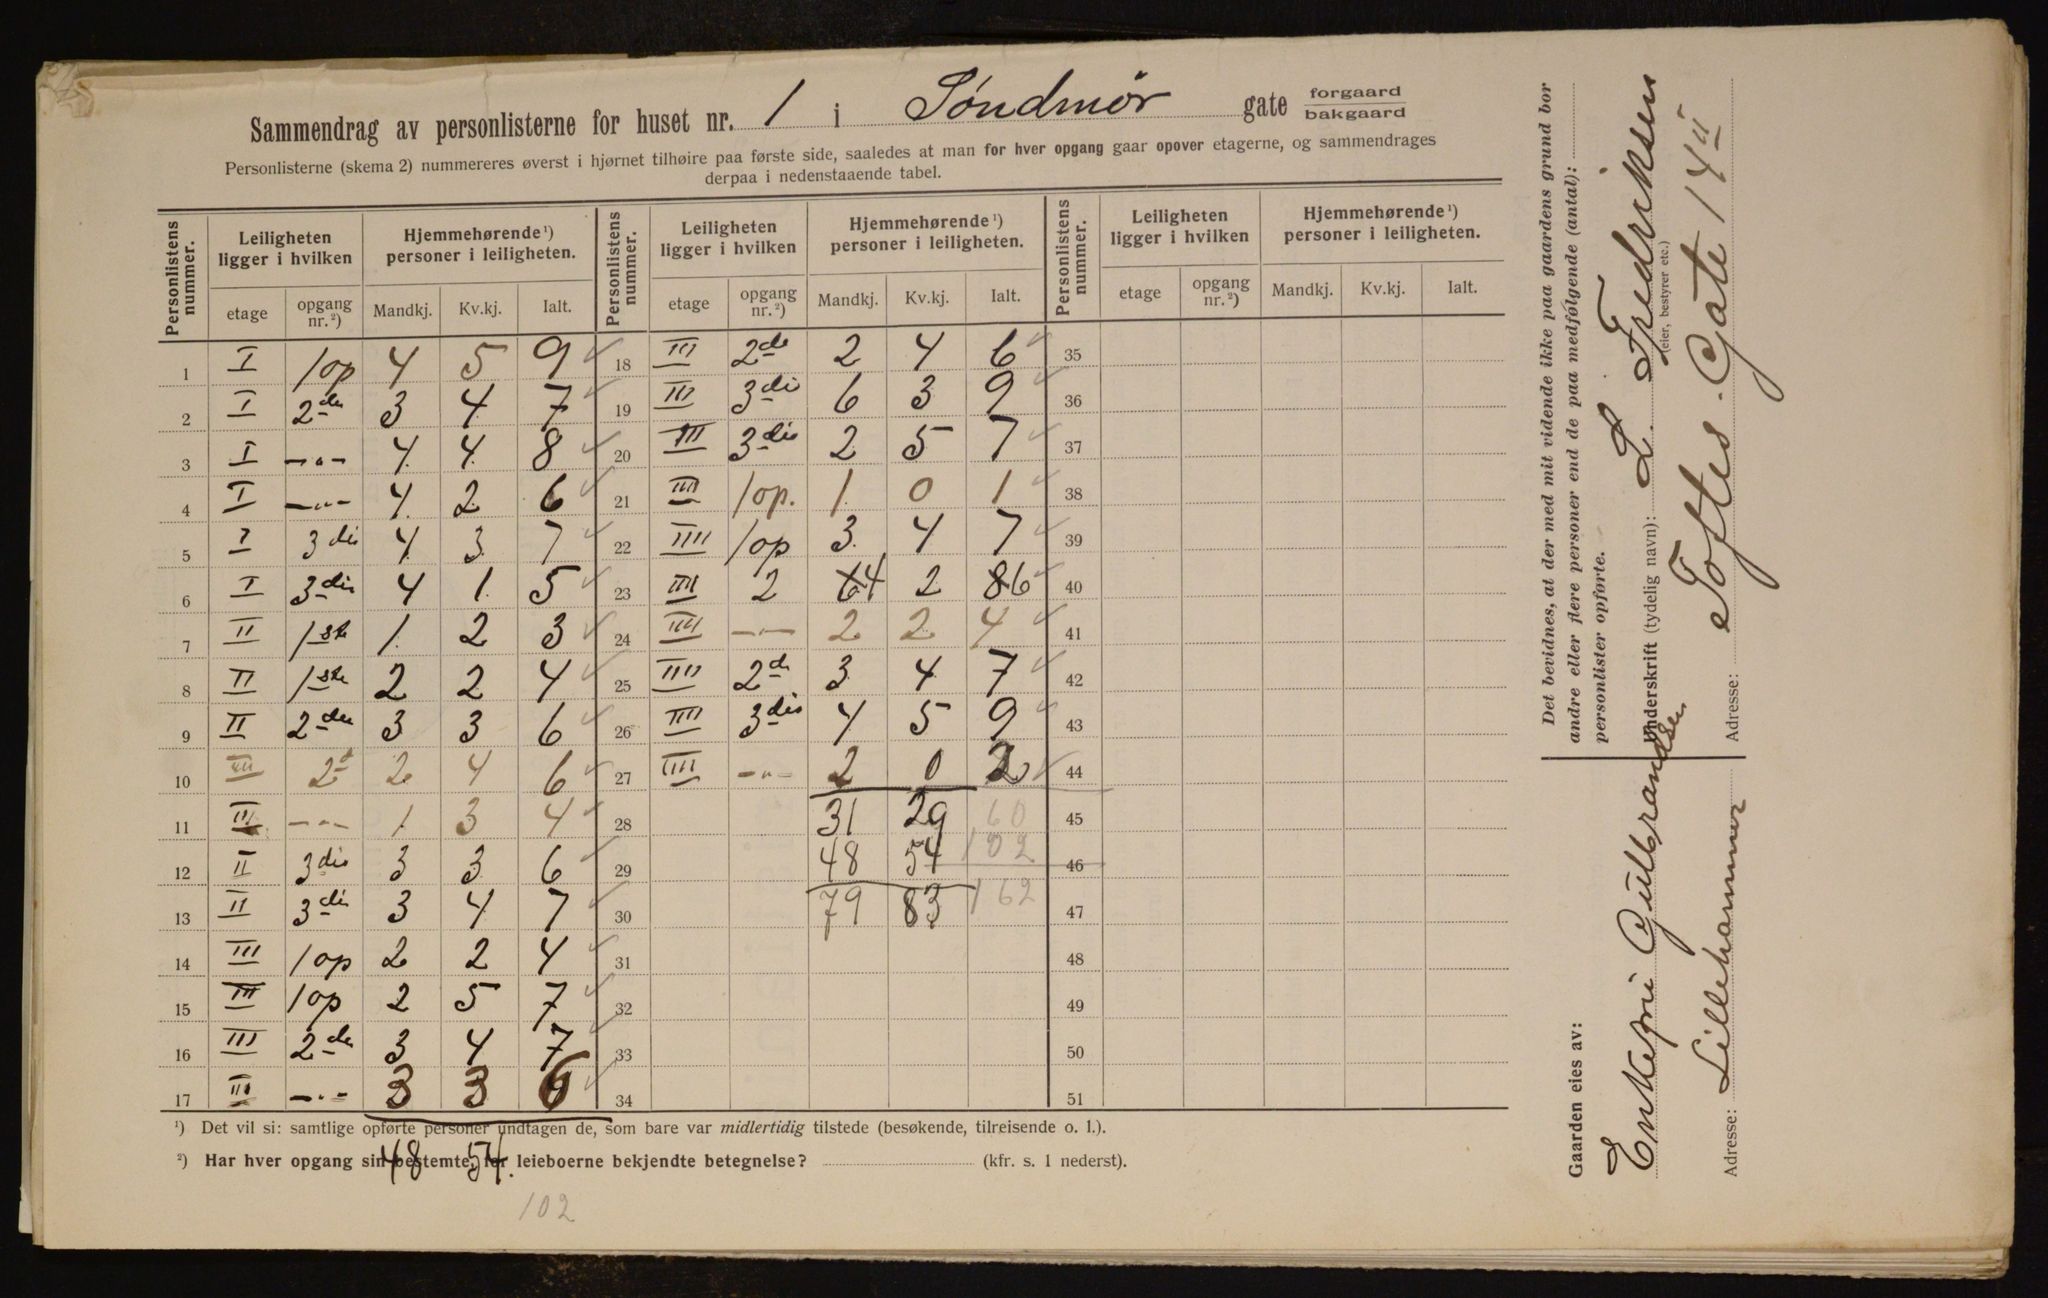 Sammendrag av personlisterne for huset nr. 1 i Søndmør gate forgaard bakgaard
Personlisterne (skema 2) nummereres øverst i hjørnet tilhøire paa første side, saaledes at man for hver opgang gaar opover etagerne, og sammendrages
derpaa i nedenstaaende tabel.
Personlistens nummer. Leiligheten ligger i hvilken Hjemmehørende ¹) personer i leiligheten. Personlistens nummer. Leiligheten ligger i hvilken Hjemmehørende ¹) personer i leiligheten. Personlistens nummer. Leiligheten ligger i hvilken Hjemmehørende ¹) personer i leiligheten.
etage opgang nr. ²) Mandkj. Kv.kj. Ialt. etage opgang nr. ²) Mandkj. Kv.kj. Ialt. etage opgang nr. ²) Mandkj. Kv.kj. Ialt.
1 I 1 op 4 5 9 ✓ 18 III 2de 2 4 6 ✓ 35
2 I 2den 3 4 7 ✓ 19 III 3die 6 3 9 ✓ 36
3 I -"- 4 4 8 ✓ 20 III 3die 2 5 7 ✓ 37
4 I -"- 4 2 6 ✓ 21 IIII 1 op. 1 0 1 ✓ 38
5 I 3die 4 3 7 ✓ 22 IIII 1 op 3 4 7 ✓ 39
6 I 3die 4 1 5 ✓ 23 IIII 2 64 2 86 ✓ 40
7 II 1ste 1 2 3 ✓ 24 IIII -"- 2 2 4 ✓ 41
8 II 1ste 2 2 4 ✓ 25 IIII 2de 3 4 7 ✓ 42
9 II 2den 3 3 6 ✓ 26 IIII 3die 4 5 9 ✓ 43
10 2d 2 4 6 ✓ 27 IIII -"- 2 0 2 ✓ 44
11 -"- 1 3 4 ✓ 28 31 29 60 45
12 II 3die 3 3 6 ✓ 29 48 54 102 46
13 II 3die 3 4 7 ✓ 30 79 83 162 47
14 III 1 op 2 2 4 ✓ 31 48
15 III 1 op 2 5 7 ✓ 32 49
16 III 2den 3 4 7 ✓ 33 50
17 III -"- 3 3 6 ✓ 34 51
¹) Det vil si: samtlige opførte personer undtagen de, som bare var midlertidig tilstede (besøkende, tilreisende o. l.).
²) Har hver opgang sin bestemte, for leieboerne bekjendte betegnelse? (kfr. s. 1 nederst).
48 54
102
Det bevidnes, at der med mit vidende ikke paa gaardens grund bor
andre eller flere personer end de paa medfølgende (antal):
personlister opførte.
Underskrift (tydelig navn): L. Fredriksen
(eier, bestyrer etc.)
Adresse: Toftes Gate 14 II
Gaarden eies av:
Enkefrue Gulbrandsen
Adresse: Lillehammer